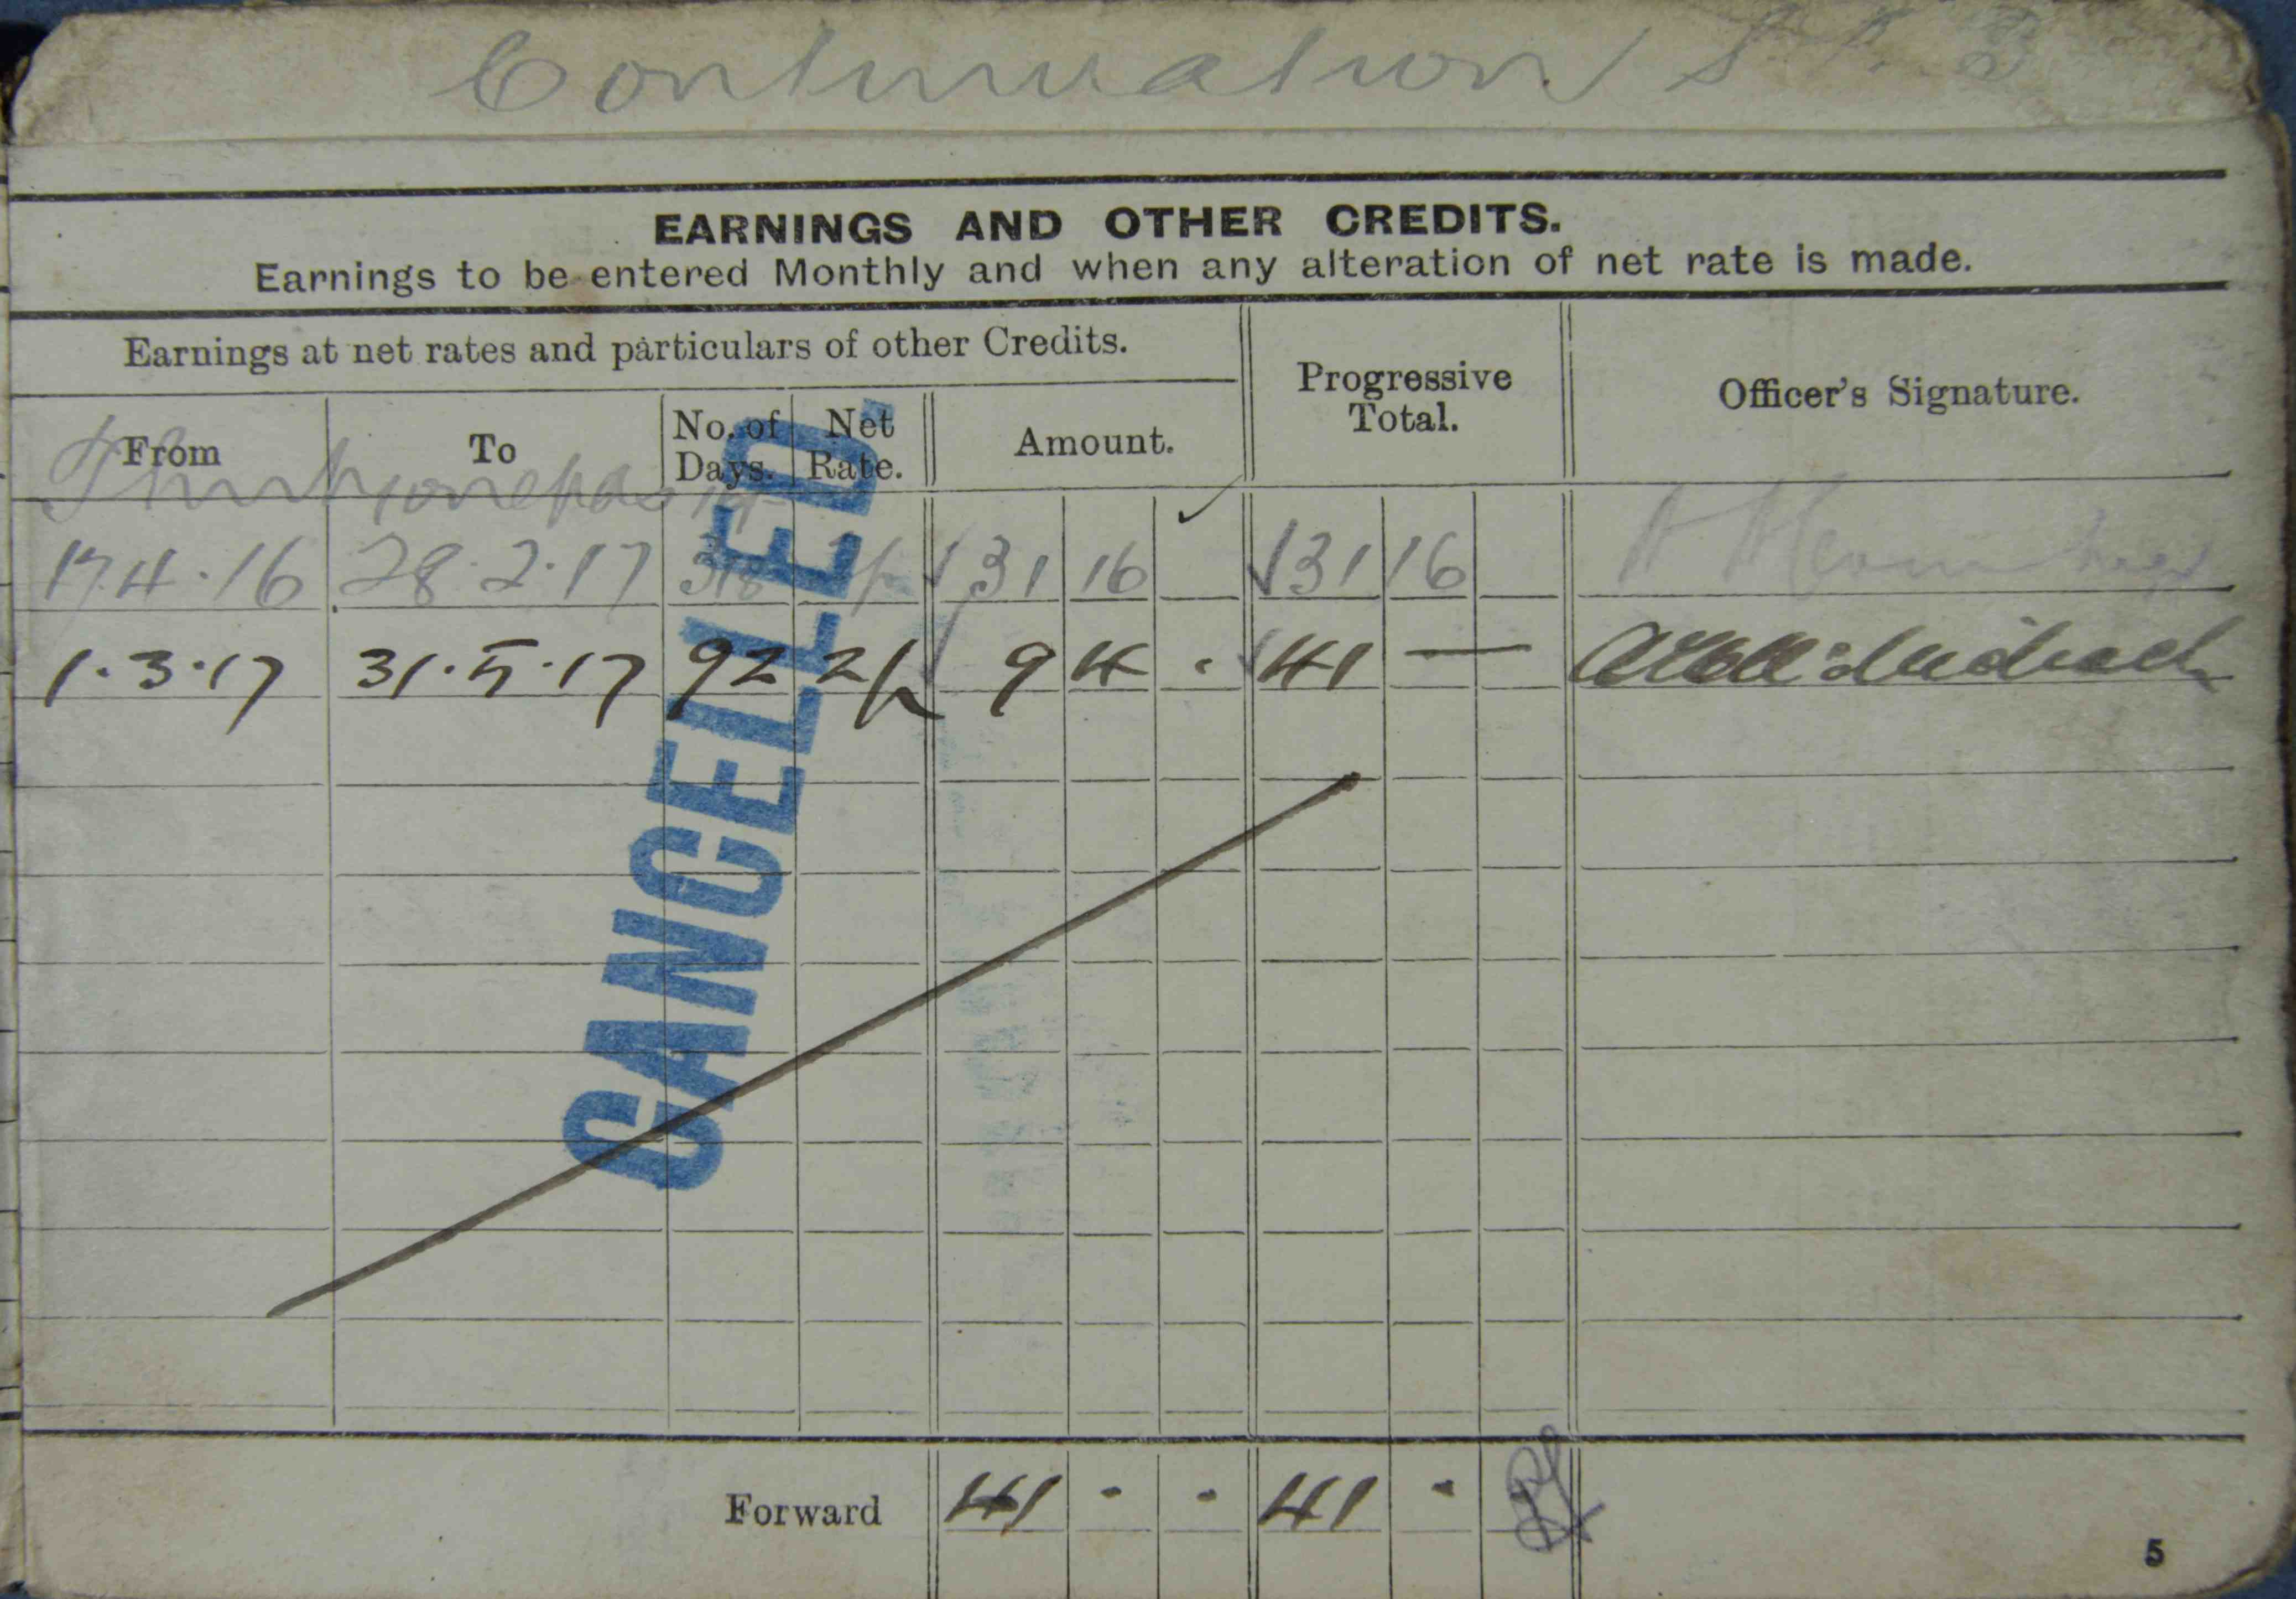 Continuation
EARNINGS AND OTHER CREDITS.
Earnings to be entered Monthly and when any alteration of net rate is made.
Earnings at net rates and particulars of other Credits.
Progressive Total.
Officer's Signature.
From To No. of Days. Net Rate. Amount.
17.4.16 28.2.17 318 2/- 31 16 31 16
1.3.17 31.5.17 92 2/- 9 4 . 41 —
CANCELLED
Forward 41 - - 41 -
5